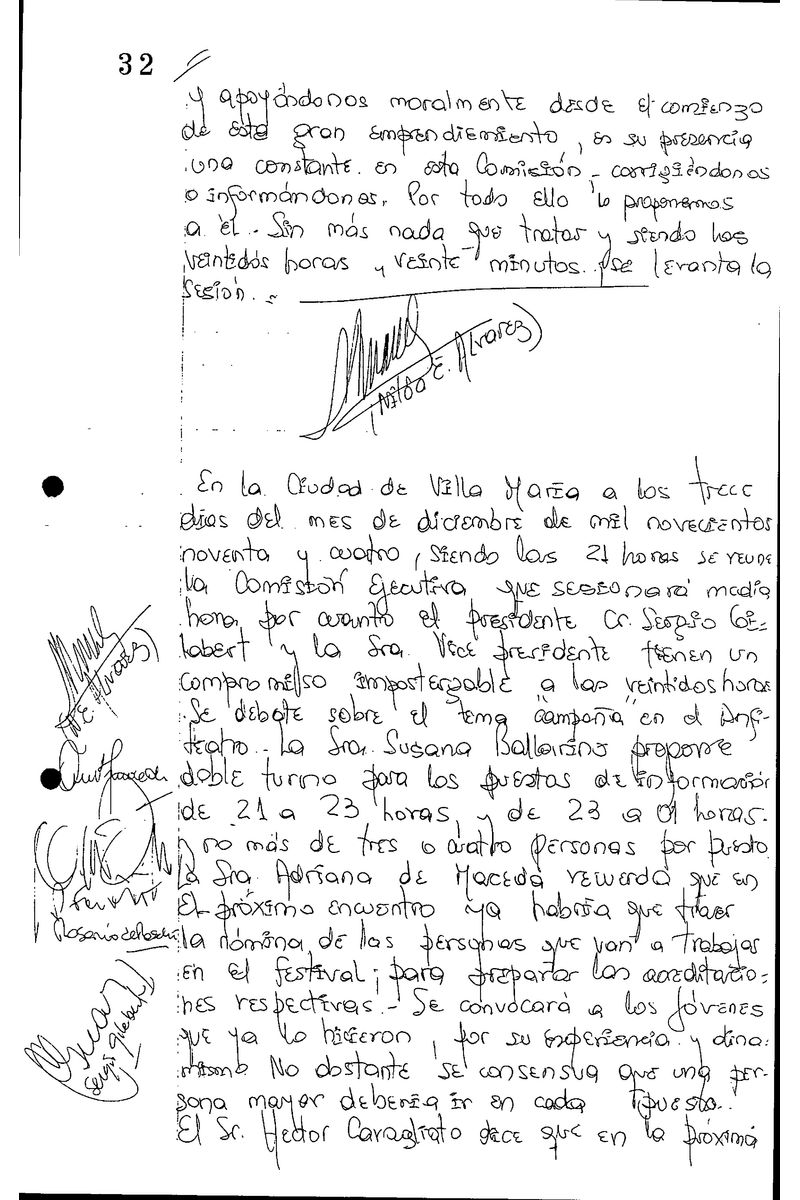 32
y apoyándonos moralmente desde el comienzo
de este gran emprendimiento, es su presencia
una constante en esta Comisión - corrigiéndonos
o informándonos. Por todo ello lo proponemos
a él. - Sin más nada que tratar y siendo las
veintidós horas y veinte minutos se levanta la
Sesión. -
(Nilda E. Alvarez)
En la Ciudad de Villa María a los trece
días del mes de diciembre de mil novecientos
noventa y cuatro, siendo las 21 horas se reune
la Comisión Ejecutiva que sesionará media
hora, por cuanto el presidente Cr. Sergio Gi-
labert y la Sra. Vice presidente tienen un
compromiso impostergable a las veintidos horas
Se debate sobre el tema "campaña" en el Anfi-
teatro. - La Sra. Susana Ballarino propone
doble turno para los puestos de información
de 21 a 23 horas, y de 23 a 01 horas.
no más de tres o cuatro personas por puesto.
La Sra. Adriana de Maceda recuerda que en
el próximo encuentro ya habría que traer
la nómina de las personas que van a trabajar
en el festival; para preparar las acreditacio-
nes respectivas. - Se convocará a los jóvenes
que ya lo hicieron, por su experiencia y dina-
mismo No obstante se consensua que una per-
sona mayor debería ir en cada puesto.
El Sr. Héctor Cavagliato dice que en la próxima
(N E. Alvarez)
Sergio Gilabert